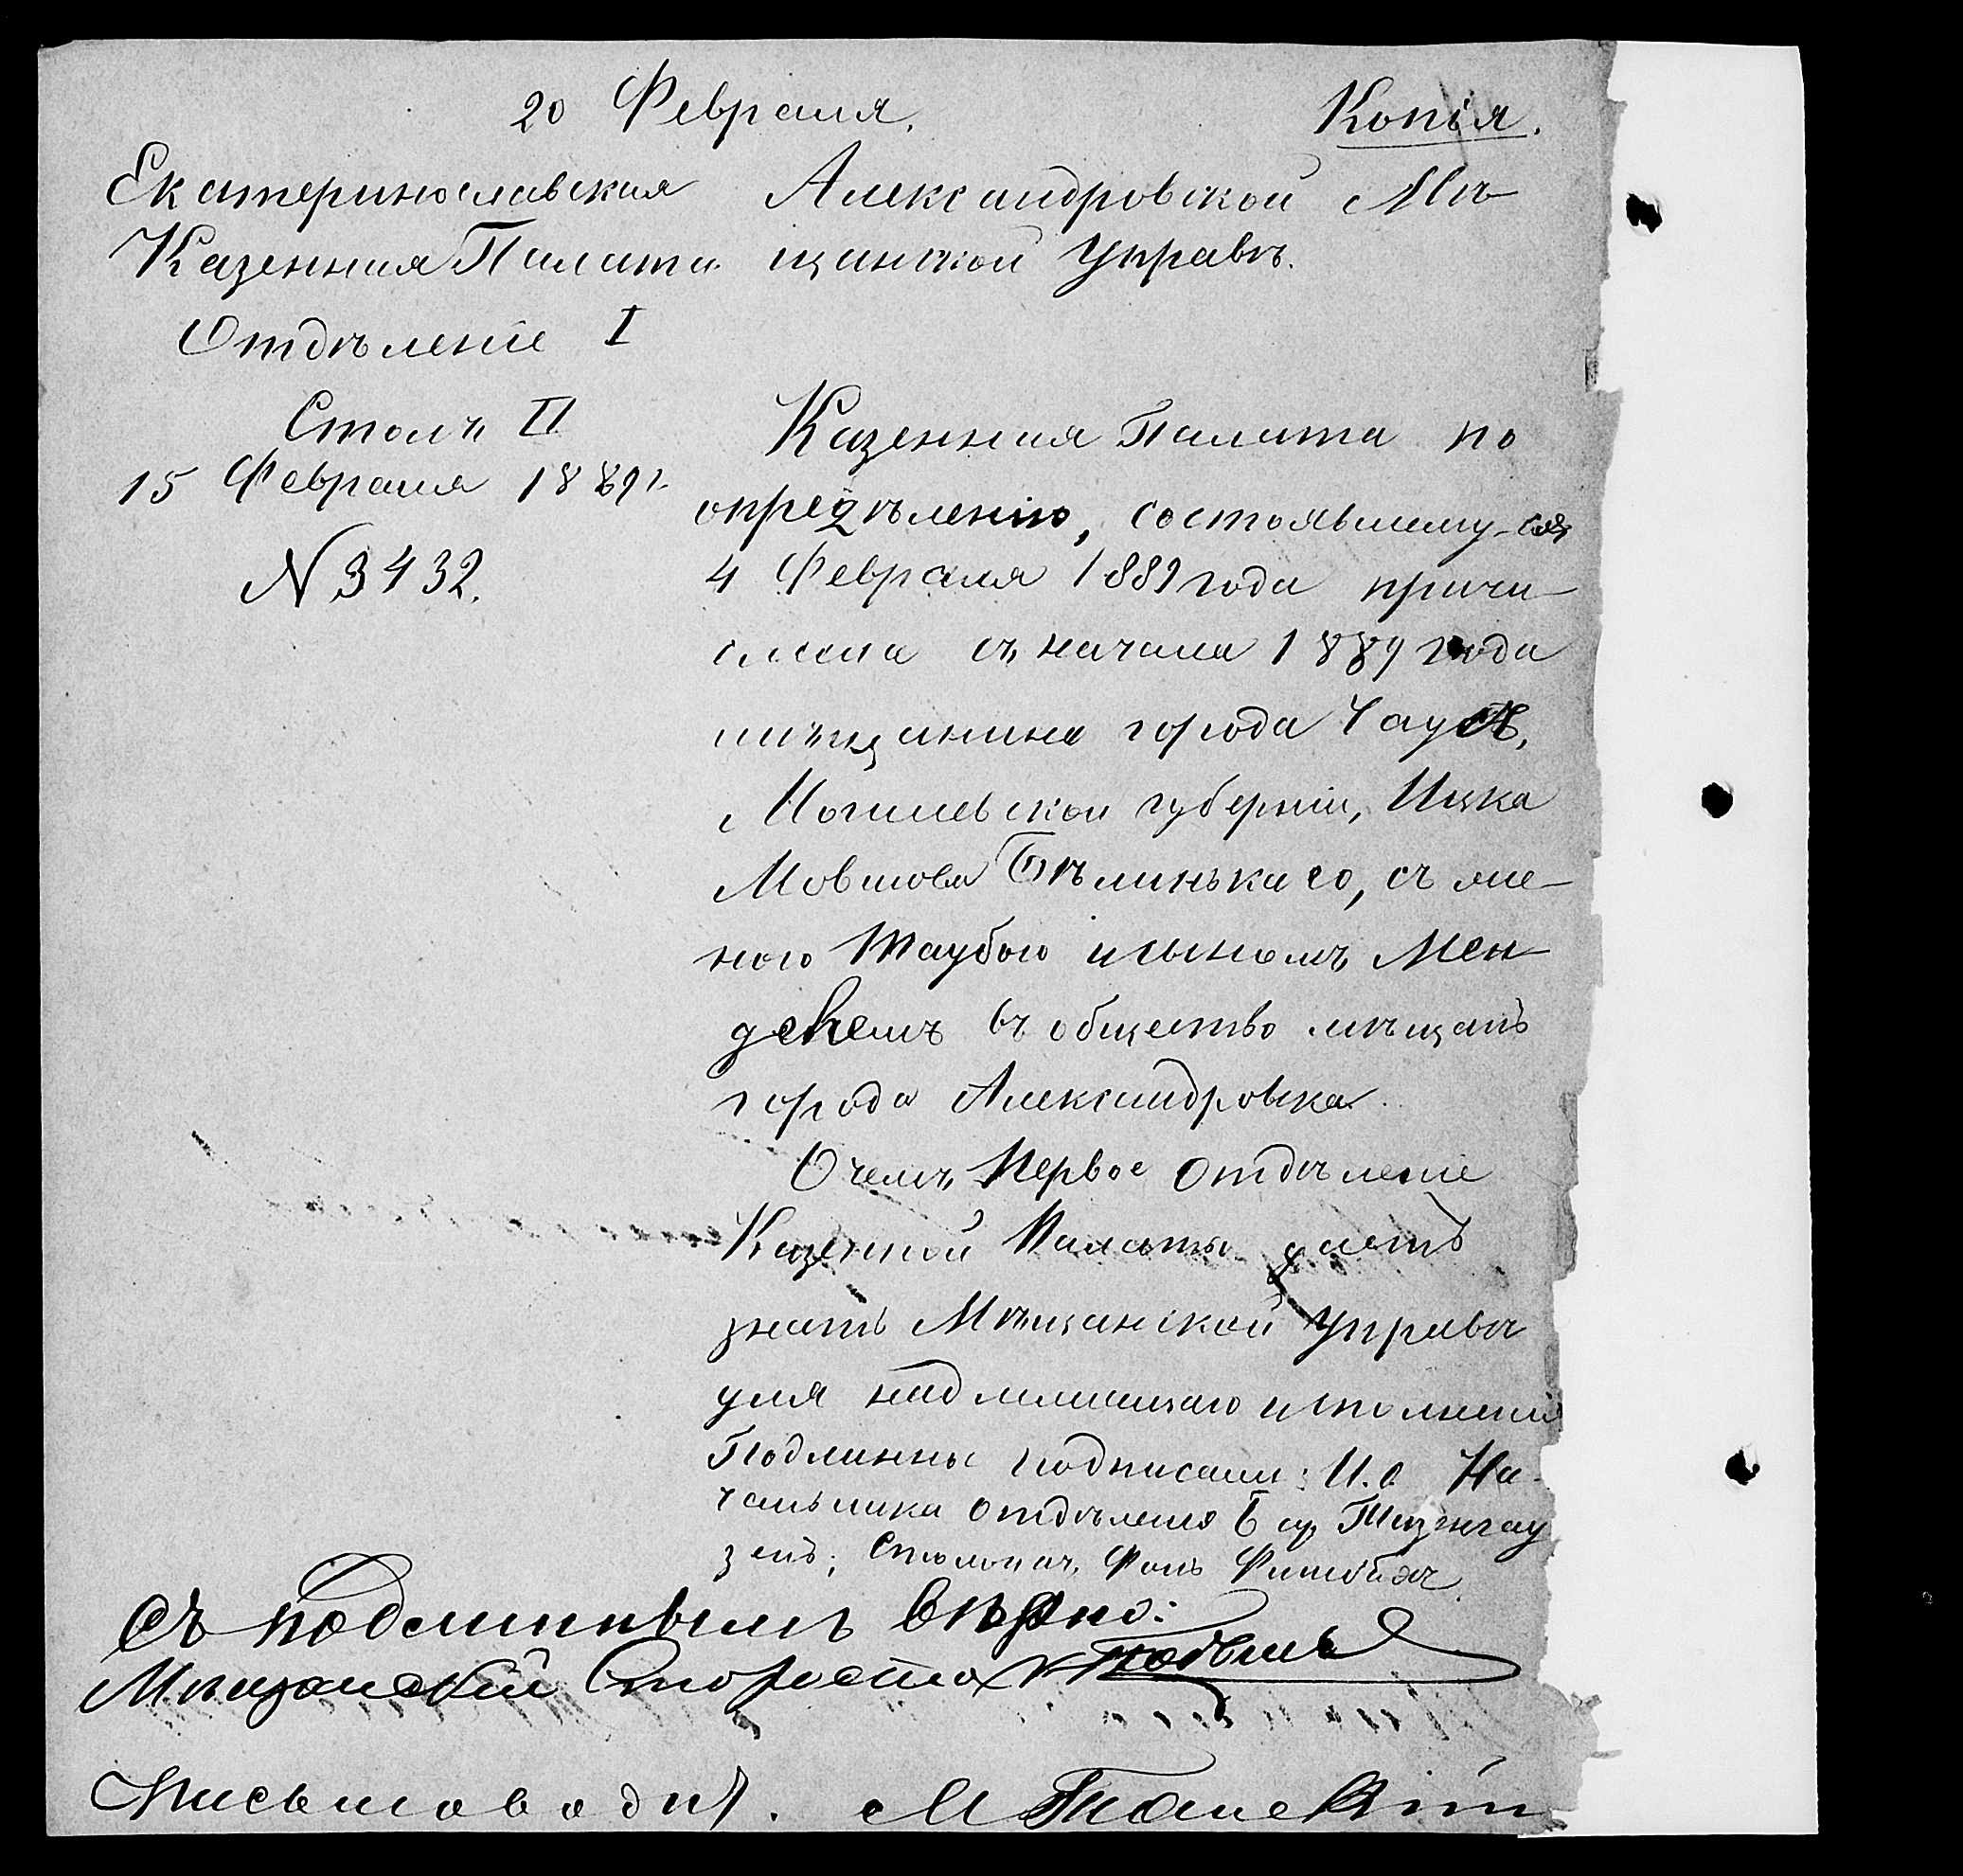 20 Февраля.
Копія.
Екатеринославская
Казенная Палата.
Отдѣленіе I
Столъ II
15 Февраля 1889 г.
N 3432.
Александровской Мѣ-
щанской Управѣ.
Казенная Палата по
опредѣленію, состоявшему-ся
4 Февраля 1889 года причи-
слила съ начала 1889 года
мѣщанина города Чаусъ,
Могилевской губерніи, Ицка
Мовшова Бѣлинькаго, съ же-
ною Таубою и сыномъ Мен-
делемъ въ общество мѣщанъ
города Александровска.
О чемъ Первое Отдѣленіе
Казенной Палаты даетъ
знать Мѣщанской Управѣ
для надлежащаго исполненія
Подлинны подписали: И. о. На-
чальника Отдѣленія
зенъ; Столонач. Фонъ
Съ подлиннымъ вѣрно:
Мѣщанскій Староста
Письмоводит. М